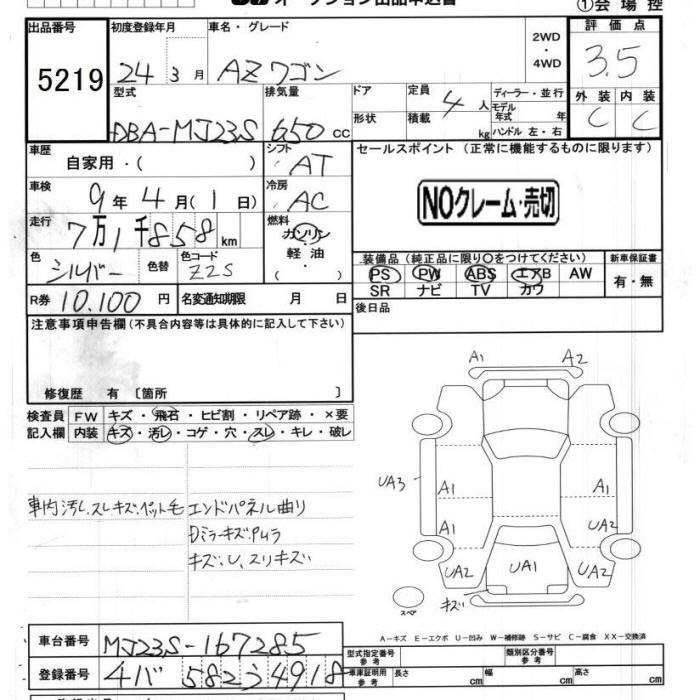 オークション出品申込書
①会場控
出品番号
5219
初度登録年月
24 3 月
車名・グレード
AZワゴン
2WD
・
4WD
評価点
3.5
外装 内装
C C
型式
DBA-MJ23S
排気量
650 cc
ドア
形状
定員
4 人
積載
kg
ディーラー・並行
モデル
年式 年
ハンドル 左・右
車歴
自家用・( )
シフト
AT
セールスポイント (正常に機能するものに限ります)
NOクレーム・売切
車検
9 年 4 月 ( 1 日)
冷房
AC
走行
7万1千858 km
燃料
ガソリン
軽油
・( )
色
シルバー
色替
色コード
Z2S
装備品 (純正品に限り○をつけてください)
PS PW ABS エアB AW
SR ナビ TV カワ
新車保証書
有・無
R券 10,100 円
名変通知期限 月 日
後日品
注意事項申告欄 (不具合内容等は具体的に記入して下さい)
修復歴 有 〔箇所 〕
検査員
記入欄
FW キズ・飛石・ヒビ割・リペア跡・×要
内装 キズ・汚レ・コゲ・穴・スレ・キレ・破レ
車内汚レ.スレキズ.ペット毛
エンドパネル曲り
Dミラーキズ.Pムラ
キズ、U、スリキズ
A1 A2
UA3
A1 A1
A1 UA2
UA2 UA1 UA2
キズ
スペア
A-キズ E-エクボ U-凹み W-補修跡 S-サビ C-腐食 XX-交換済
車台番号 MJ23S-167285
型式指定番号
参考
類別区分番号
参考
登録番号
車庫証明用
参考
長さ cm 幅 cm 高さ cm